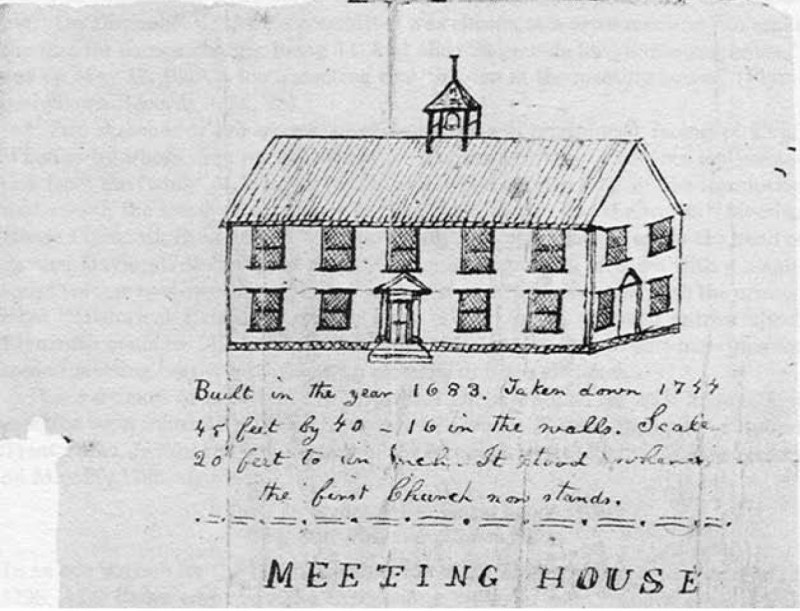 Built in the year 1683. Taken down 1744
45 feet by 40 - 16 in the walls. Scale
20 feet to an inch. It stood where
the first Church now stands.
MEETING HOUSE